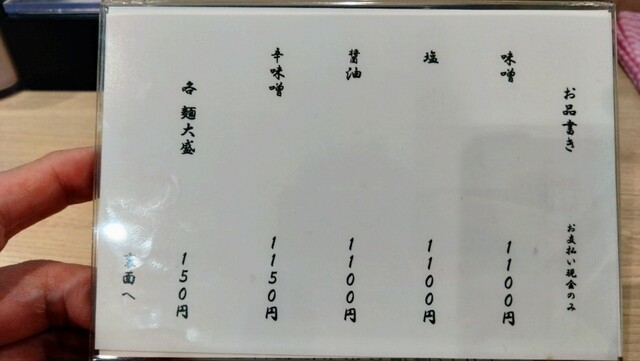 お品書き
お支払い現金のみ
味噌
1100円
塩
1100円
醤油
1100円
辛味噌
1150円
各 麺大盛
150円
裏面へ